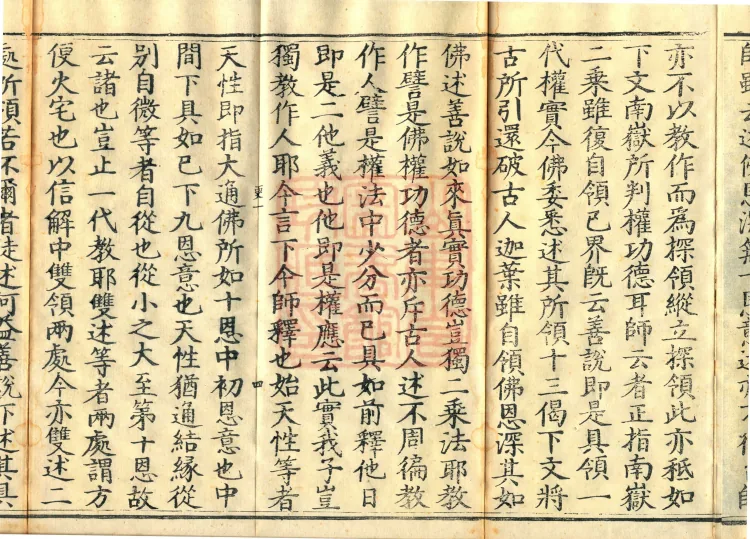 亦不以教作而爲探領縱立探領此亦秪如
下文南嶽所判權功德耳師云者正指南嶽
二乘雖復自領已界旣云善說即是具領一
代權實今佛委悉述其所領十三偈下文將
古所引還破古人迦葉雖自領佛恩深其如
佛述善說如來眞實功德豈獨二乘法耶教
作譬是佛權功德者亦斥古人述不周徧教
作人譬是權法中少分而已具如前釋他日
即是二他義也他即是權應云此實我子豈
獨教作人耶今言下今師釋也始天性等者
更一 四
天性即指大通佛所如十恩中初恩意也中
間下具如已下九恩意也天性猶通結緣從
別自微等者自從也從小之大至第十恩故
云諸也豈止一代教耶雙述等者兩處謂方
便火宅也以信解中雙領兩處今亦雙述二
處所須若不爾者徒述何益善說下述其具